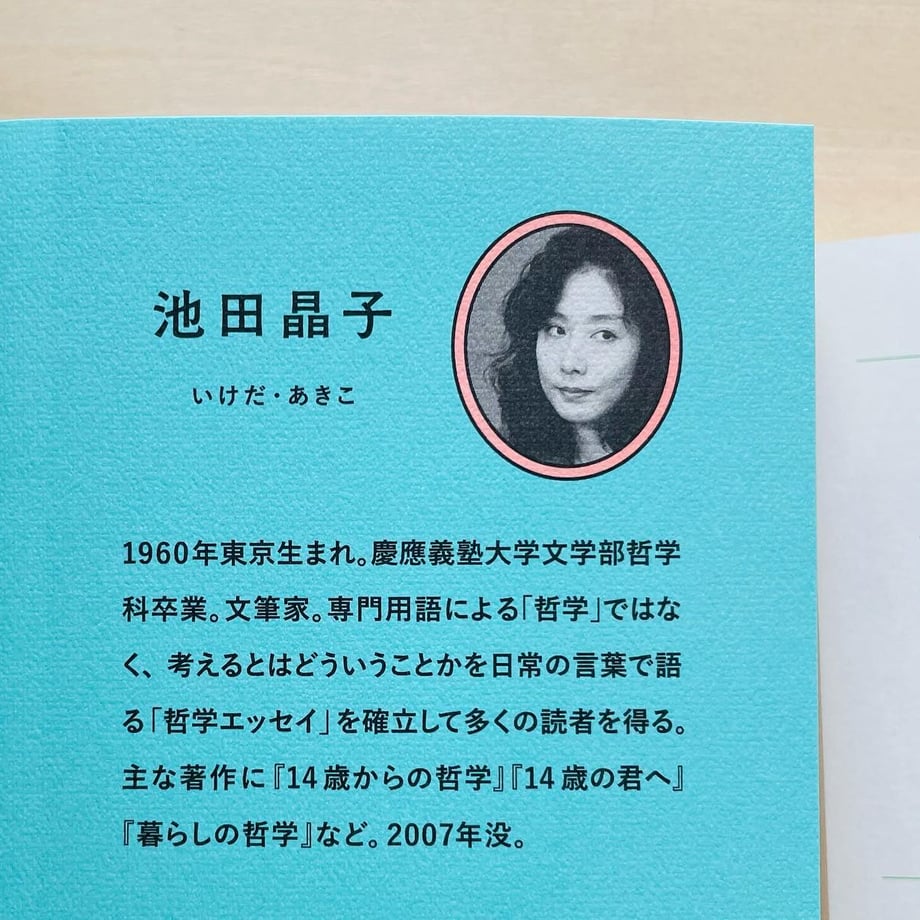 池田晶子
いけだ・あきこ
1960年東京生まれ。慶應義塾大学文学部哲学
科卒業。文筆家。専門用語による「哲学」ではな
く、考えるとはどういうことかを日常の言葉で語
る「哲学エッセイ」を確立して多くの読者を得る。
主な著作に『14歳からの哲学』『14歳の君へ』
『暮らしの哲学』など。2007年没。